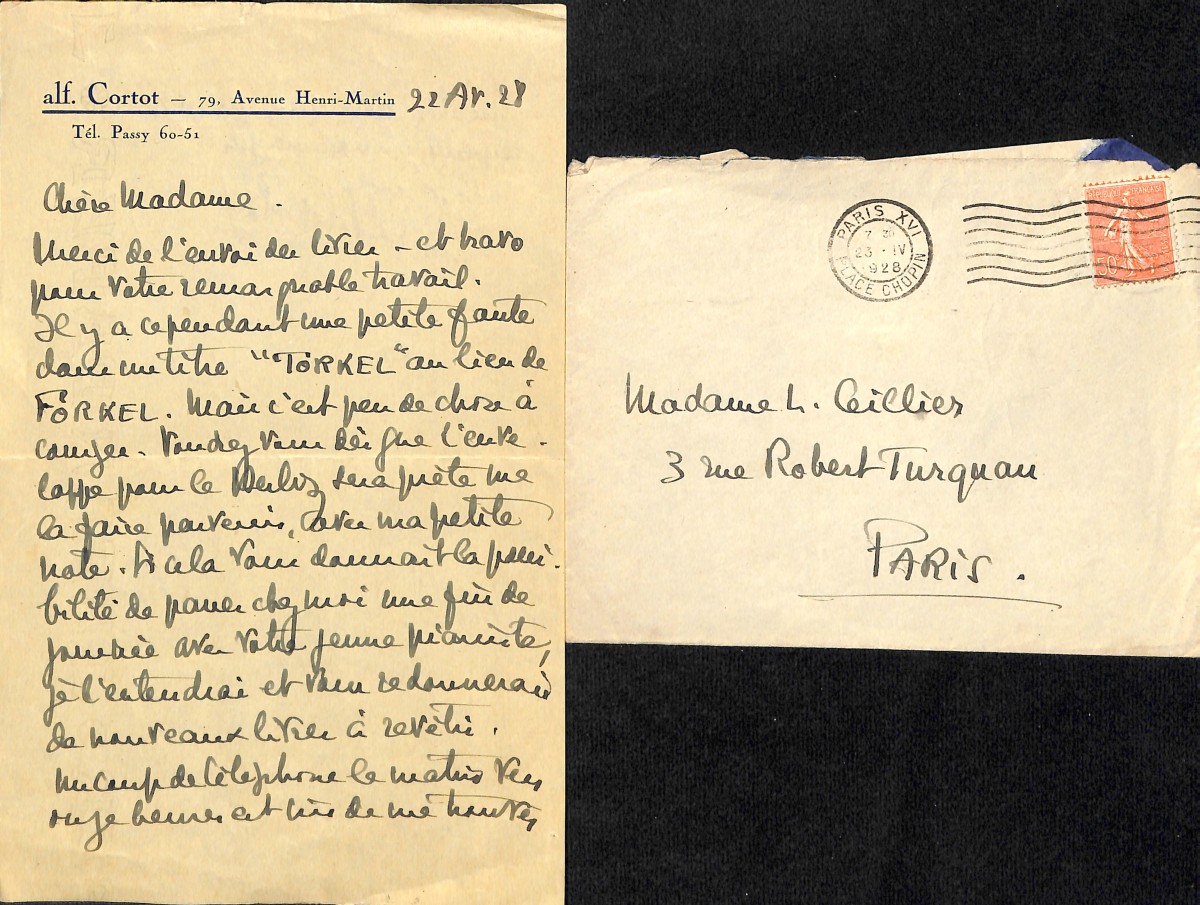 alf. Cortot — 79, Avenue Henri-Martin 22 Av. 28
Tél. Passy 60-51
Chère Madame.
Merci de l'envoi des livres – et bravo
pour votre remarquable travail.
Il y a cependant une petite faute
dans un titre "TÖRKEL" au lieu de
FÖRKEL. Mais c'est peu de chose à
corriger. Voudrez vous dès que l'enve-
loppe pour le Berlioz sera prête me
la faire parvenir, avec ma petite
note. Si cela vous donnait la possi-
bilité de passer chez moi une fin de
journée avec votre jeune pianiste,
je l'entendrai et vous redonnerais
de nouveaux livres à revêtir.
Un coup de téléphone le matin vers
onze heures est sûr de me trouver
PARIS XVI
PLACE CHOPIN
7 30
23 · IV
1928
REPUBLIQUE FRANÇAISE
50c
Madame L. Ceillier
3 rue Robert Turquan
PARIS.